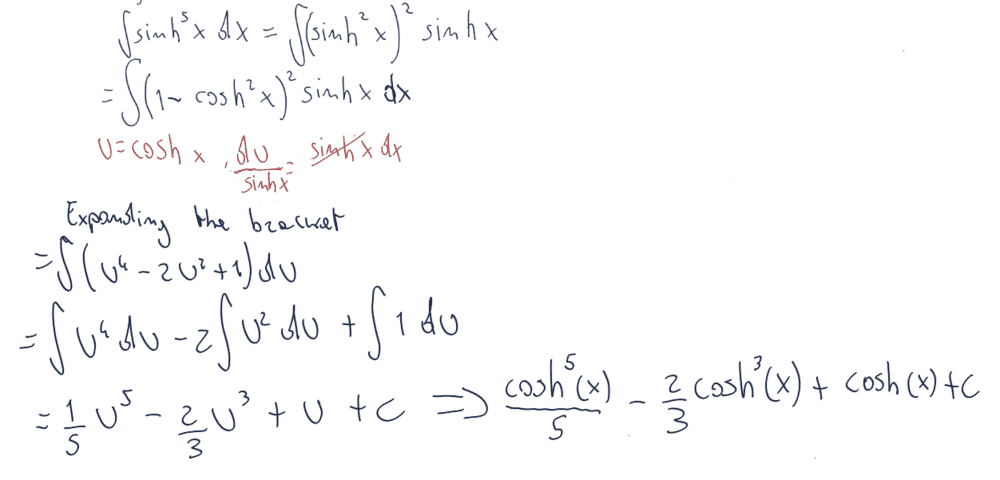 ∫sinh⁵x dx = ∫(sinh²x)² sinh x
= ∫(1 - cosh²x)² sinh x dx
U = cosh x , dU/sinhx = sinh x dx
Expanding the bracket
= ∫(U⁴ - 2U² + 1) dU
= ∫U⁴ dU - 2∫U² dU + ∫1 dU
= 1/5 U⁵ - 2/3 U³ + U + C ⇒ cosh⁵(x)/5 - 2/3 cosh³(x) + cosh(x) + C